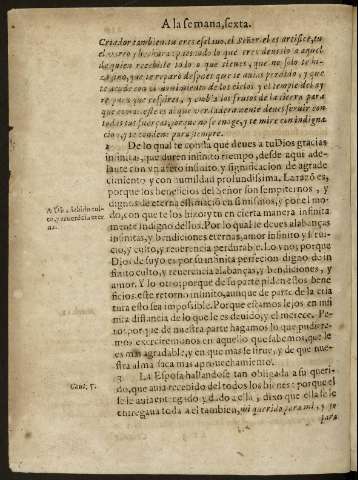 A la semana, sexta.
Criador tambien, tu eres esclavo, el Señor, el es artifice, tu
el varro, y hechura, pues todo lo que eres deves lo a aquel
de quien recebiste todo o que tienes, que no solo te hi-
zo sino, que te reparò despues que te avias perdido, y que
te acude con el movimiento de los cielos y el tiempo del ay
re para que respires, y embia los frutos de la tierra para
que comas, este es al que verdaderamente deves servir con
todas tus fuerças, porque no se enoge, y te mire con indigna
cion, y te condene para siempre.
2 De lo qual te consta que deues a tu Dios gracias
infinitas, que duren infinito tiempo, desde aqui ade-
lante con vn afeto infinito y significacion de agrade
cimiento y con humildad profundissima. La razō es,
porque los beneficios del Señor son sempiternos, y
dignos de eterna estimaciō en si mismos, y por el mo-
do, con que te los hizo y tu en cierta manera infinita
mente indigno dellos. Por lo qual le deues alabanças
infinitas, y bendiciones eternas, amor infinito y serui-
cio, y culto, y reuerencia perdurable. Lo vno, porque
Dios de suyo es por su infinita perfecion digno de in
finito culto, y reuerencia alabanças, y bendiciones, y
amor. Y lo otro, porque de su parte piden estos bene
ficios, este retorno infinito, aunque de parte de la cria
tura esto sea impossible. Porque estamos lejos en infi
nita distancia de lo que le es deuido, y el merece. Pe-
ro porque de nuestra parte hagamos lo que pudiere-
mos exercitemonos en aquello que sabemos, que le
es mas agradable, y en que mas le sirue, y de que nue-
stra alma saca mas aprouechamiento.
3 La Esposa hallandose tan obligada a su queri-
do, que auia recenido del todos los bienes: porque el
se le auia entregado y dado a ella, dixo que ella se le
entregaua toda a el tambien, mi querido para mi, y yo
para
A Dios debido cul-
to, y
Cant. 5.